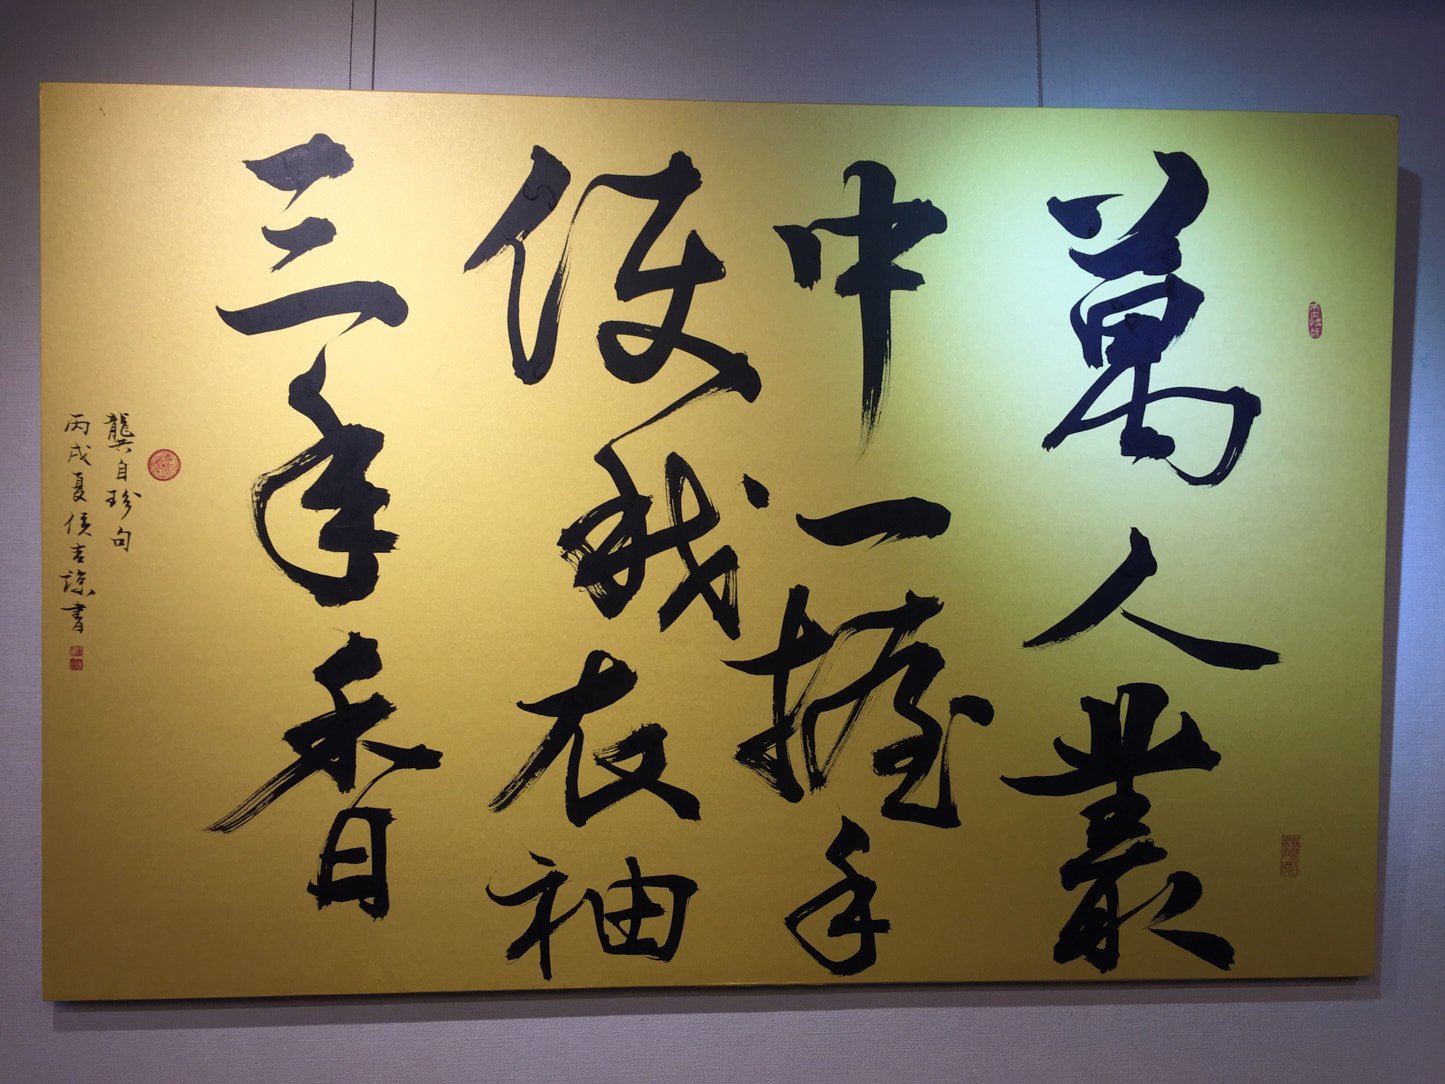 萬人叢
中一握手
使我衣袖
三年香
龔自珍句
丙戌夏侯吉諒書